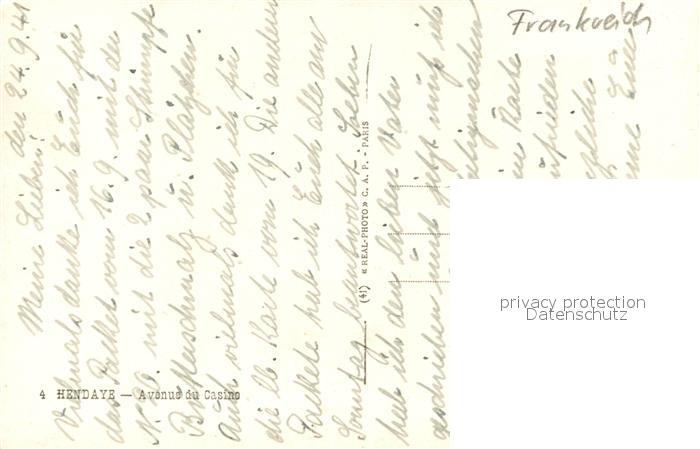 Frankreich
den 24.9.41
Meine Lieben!
Vielmals danke ich Euch für
das Packet vom 16.9. mit der
No 20 mit die 2 paar Strümpfe
Butterschmalz u. Plätzchen.
Auch vielmals dank ich für
die lb. Karte vom 19. Die andern
Packete hab ich Euch alle am
Sonntag beantwortet. Soeben
hab ich den lieben Vater
geschrieben und jetzt muß ich
Karte
zufrieden
(41) « REAL-PHOTO » C. A. P. - PARIS
4 HENDAYE — Avenue du Casino
privacy protection
Datenschutz